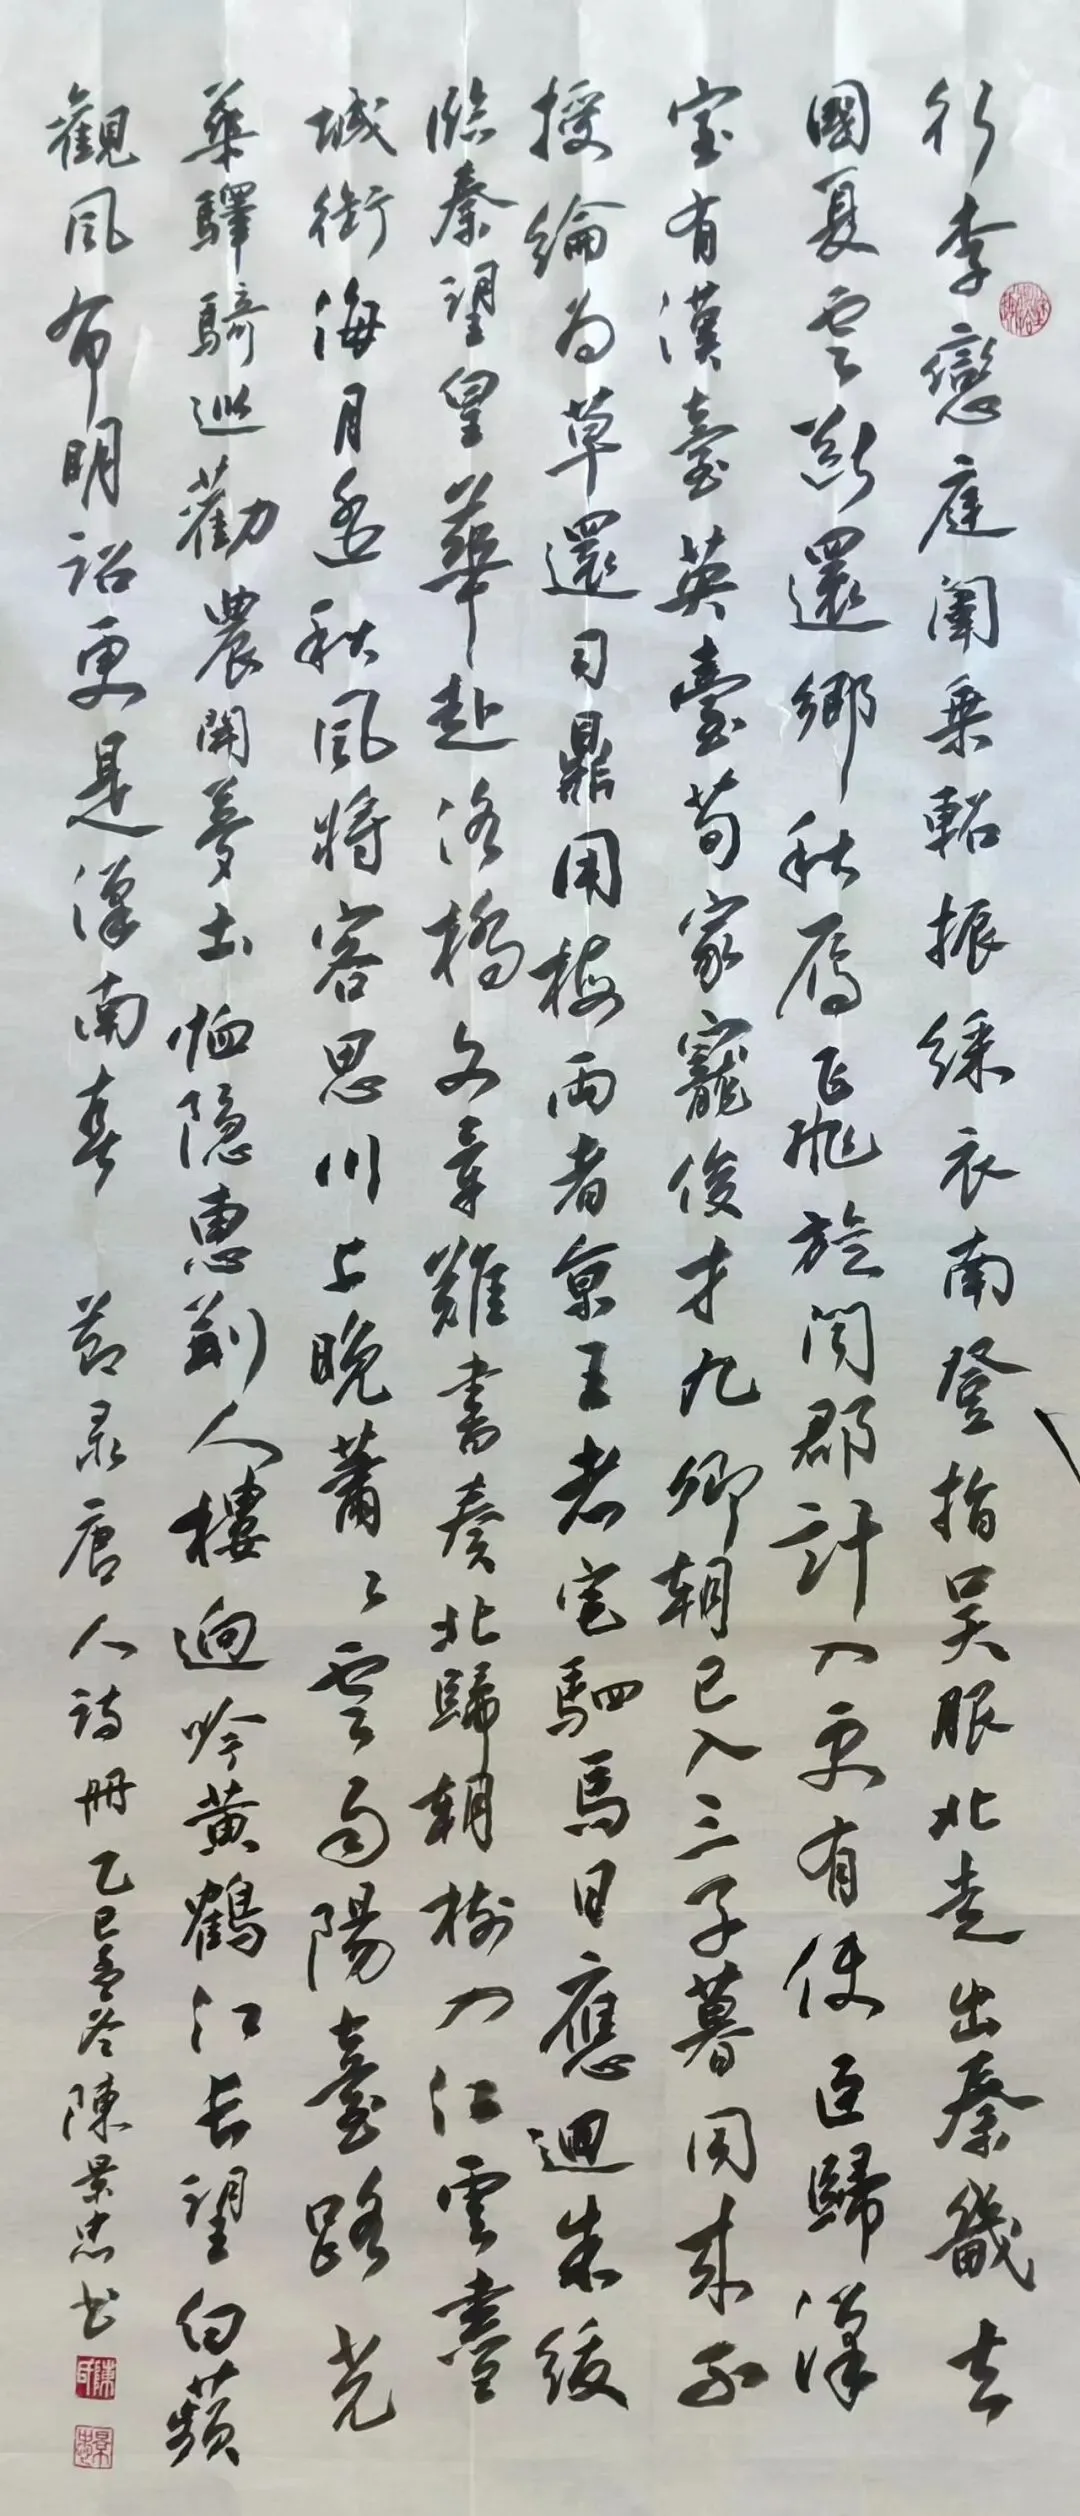 行李戀庭闈乘軺振綵衣南登指吴服北走出秦畿去
國夏雲斷還鄉秋雁飛旋聞郡計入更有使臣歸漢
室有漢臺英臺荀家寵俊才九卿朝已入三子暮同來不
授綸為草還司鼎用梅兩者京王者宅駟馬日應迴朱紱
臨秦望皇華赴洛橋文章難書奏北歸朝樹入江雲盡
城銜海月遙秋風將客思川上晚蕭々雲雨陽臺路光
華驛騎巡勸農開夢土恤隐惠荊人樓迥吟黄鶴江长望白蘋
觀風布明詔更是漢南春 節录唐人詩冊乙巳孟冬陳景忠书
陳印
景忠